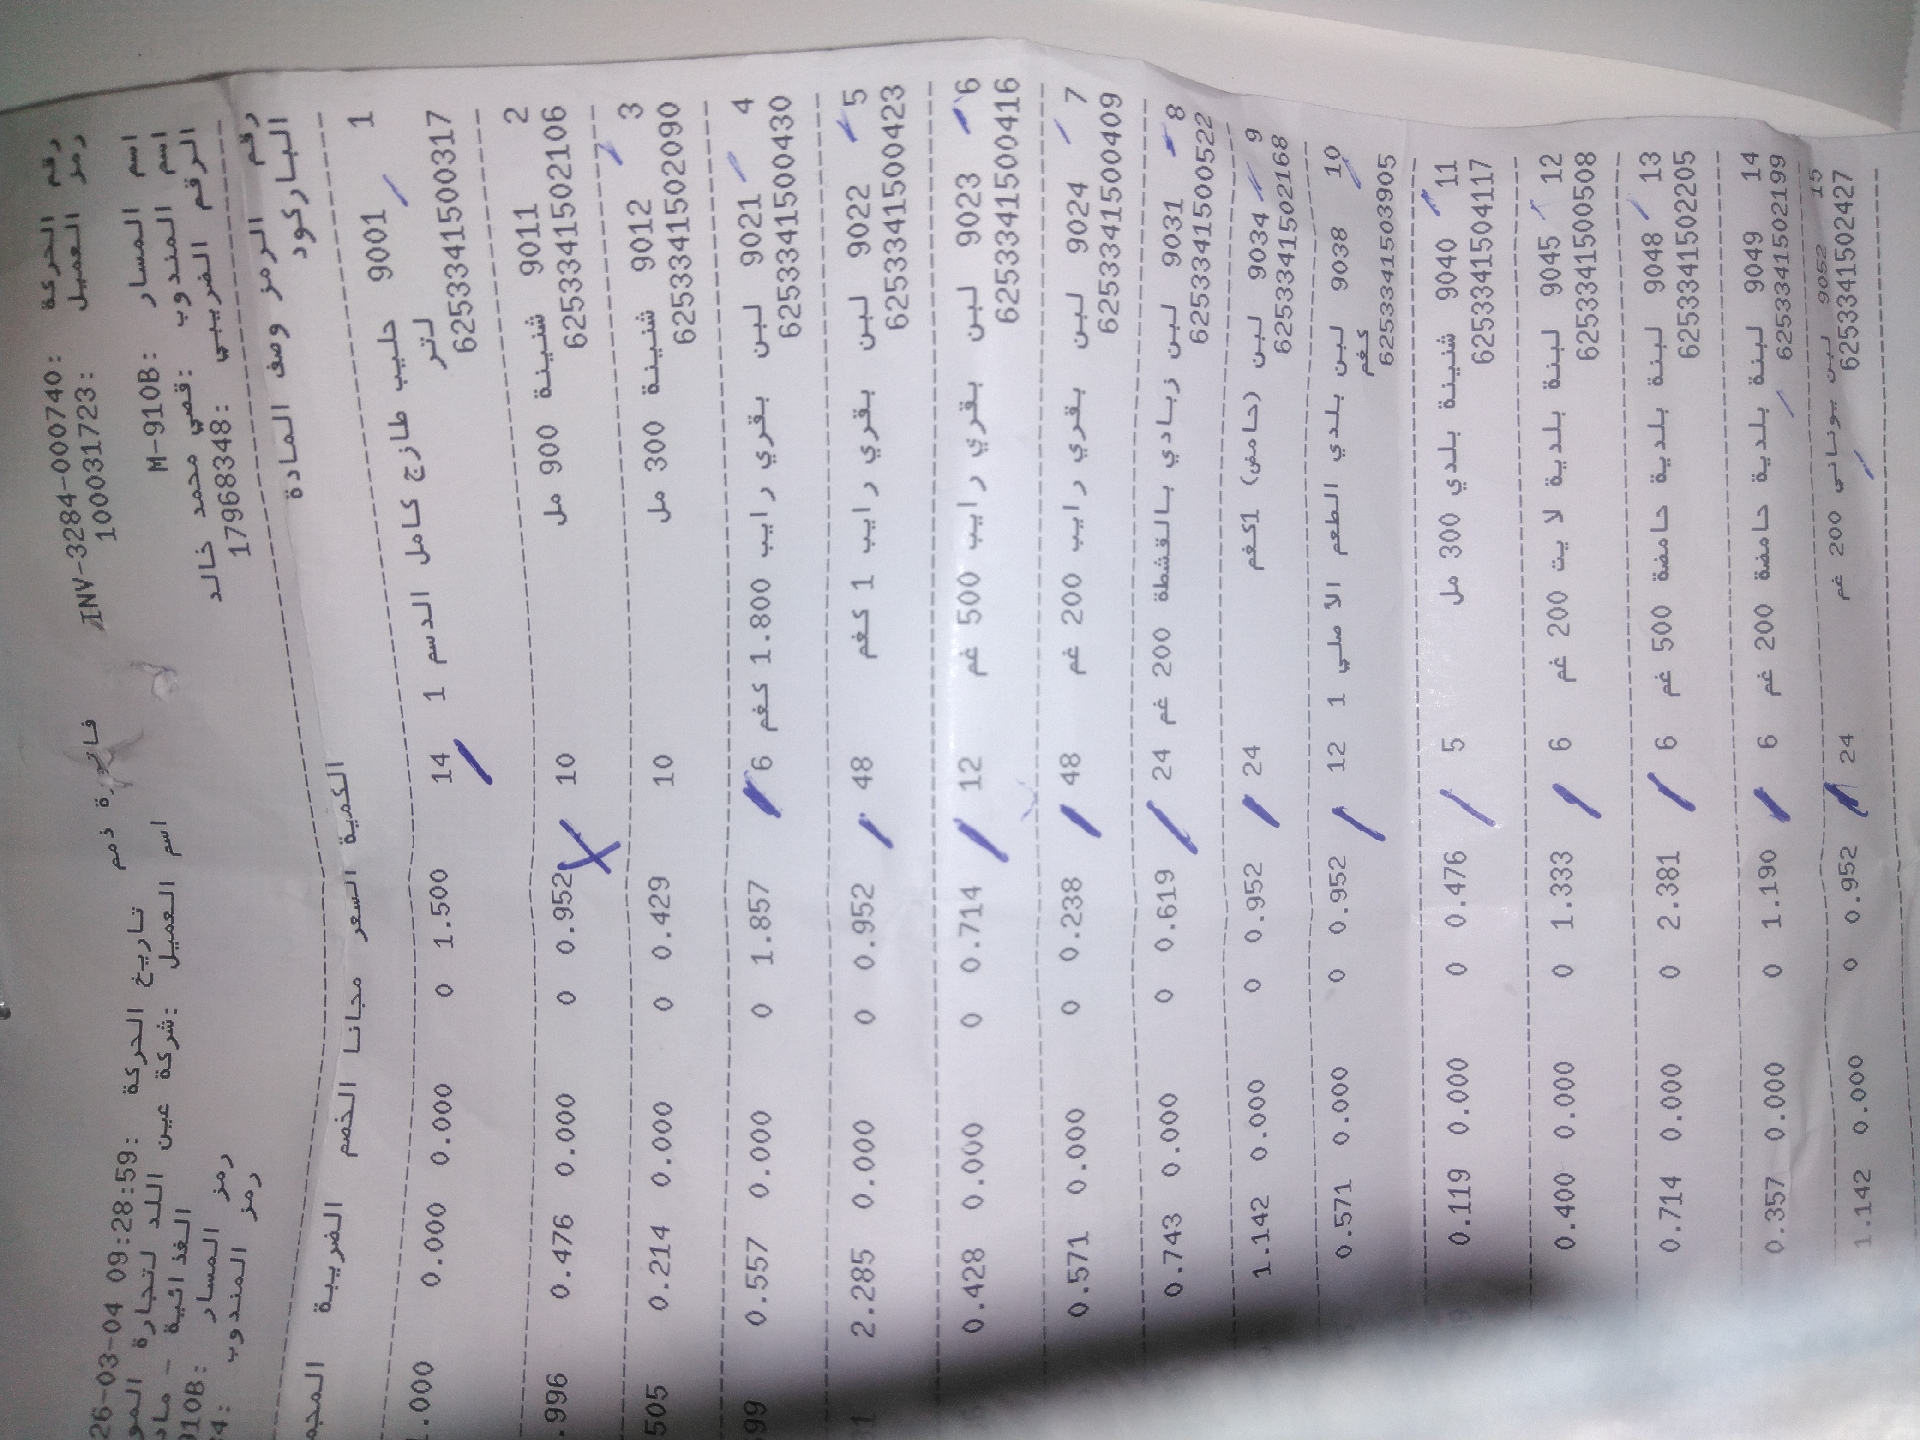 فاتورة ذمم
رقم الحركة :INV-3284-000740 تاريخ الحركة :26-03-04 09:28:59
رمز العميل :100031723 اسم العميل :شركة عين اللد لتجارة
الغذائية -
اسم المسار :M-910B رمز المسار :910B
اسم المندوب :قصي محمد خالد رمز المندوب
الرقم الضريبي :17968348
رقم الرمز وصف المادة الكمية السعر مجانا الخصم الضريبة
الباركود
1 9001 حليب طازج كامل الدسم 1 14 1.500 0 0.000 0.000
لتر
6253341500317
2 9011 شنينة 900 مل 10 0.952 0 0.000 0.476 .996
6253341502106
3 9012 شنينة 300 مل 10 0.429 0 0.000 0.214 505
6253341502090
4 9021 لبن بقري رايب 1.800 كغم 6 1.857 0 0.000 0.557
6253341500430
5 9022 لبن بقري رايب 1 كغم 48 0.952 0 0.000 2.285
6253341500423
6 9023 لبن بقري رايب 500 غم 12 0.714 0 0.000 0.428
6253341500416
7 9024 لبن بقري رايب 200 غم 48 0.238 0 0.000 0.571
6253341500409
8 9031 لبن زبادي بالقشطة 200 غم 24 0.619 0 0.000 0.743
6253341500522
9 9034 لبن (حامض) 1كغم 24 0.952 0 0.000 1.142
6253341502168
10 9038 لبن بلدي الطعم الاصلي 1 12 0.952 0 0.000 0.571
كغم
6253341503905
11 9040 شنينة بلدي 300 مل 5 0.476 0 0.000 0.119
6253341504117
12 9045 لبنة بلدية لايت 200 غم 6 1.333 0 0.000 0.400
6253341500508
13 9048 لبنة بلدية حامضة 500 غم 6 2.381 0 0.000 0.714
6253341502205
14 9049 لبنة بلدية حامضة 200 غم 6 1.190 0 0.000 0.357
6253341502199
15 9052 لبن يوناني 200 غم 24 0.952 0 0.000 1.142
6253341502427